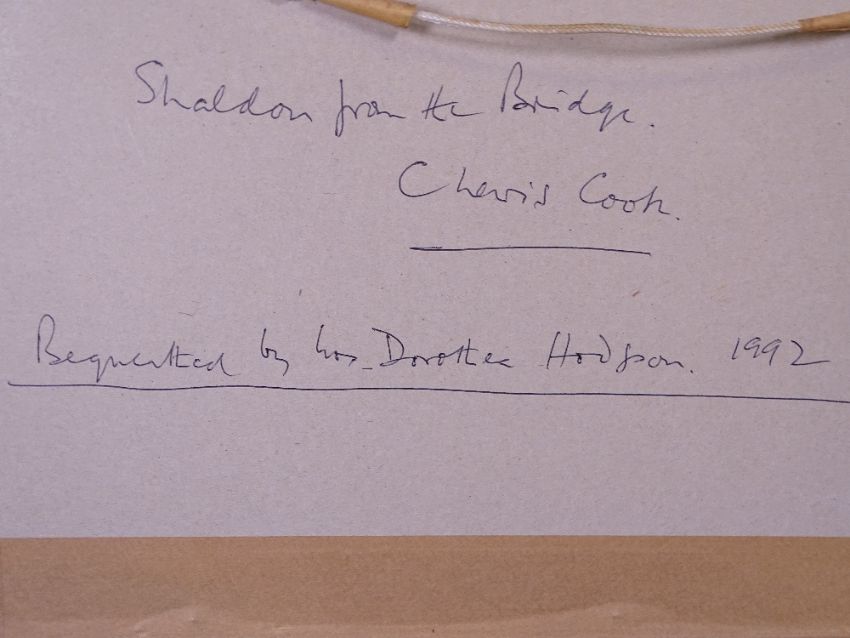 Shaldon from the Bridge.
Chevis Cook.
Bequeathed by Mrs Dorothea Hodgson. 1992